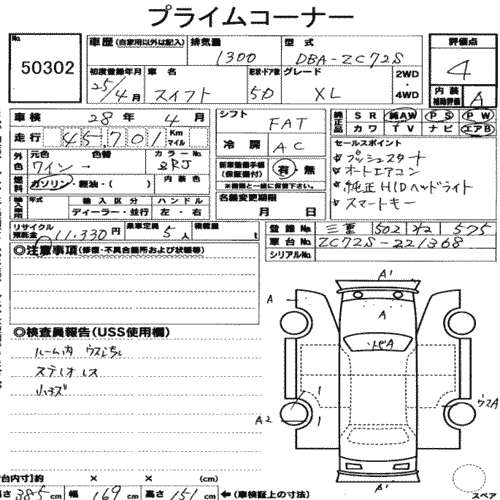 プライムコーナー
No.
50302
車歴 (自家用以外は記入)
排気量
1300
型式
DBA-ZC72S
評価点
4
初度登録年月
25/4月
車名
スイフト
形状・ドア数
5D
グレード
XL
2WD
4WD
内装補助評価
A
車検
28年4月
走行
45,701
Km
マイル
シフト
FAT
冷房
AC
純正品
SR 純AW PS PW
カワ TV ナビ エアB
外色
元色
ワイン
色替
カラーNo
ZRJ
燃料
ガソリン・軽油・( )
内装色
新車整備手帳
(保証書付)
有・無
※書類と一緒に保管下さい。
セールスポイント
プッシュスタート
オートエアコン
純正HIDヘッドライト
スマートキー
輸入車
年式
輸入区分
ディーラー・並行
ハンドル
左・右
名義変更期限
月 日
リサイクル預託金
11,330円
乗車定員
5人
積載量
t
登録No
三重 502 575
車台No
ZC72S-221368
シリアルNo
◎注意事項 (修復・不具合箇所および状態等)
◎検査員報告(USS使用欄)
ルーム内
ステレオレス
小キズ
A'
A
A
A
A2
1
1
A'
スペア
(台内寸)約 × × (cm)
長さ 385 cm 幅 169 cm 高さ 151 cm ←(車検証上の寸法)